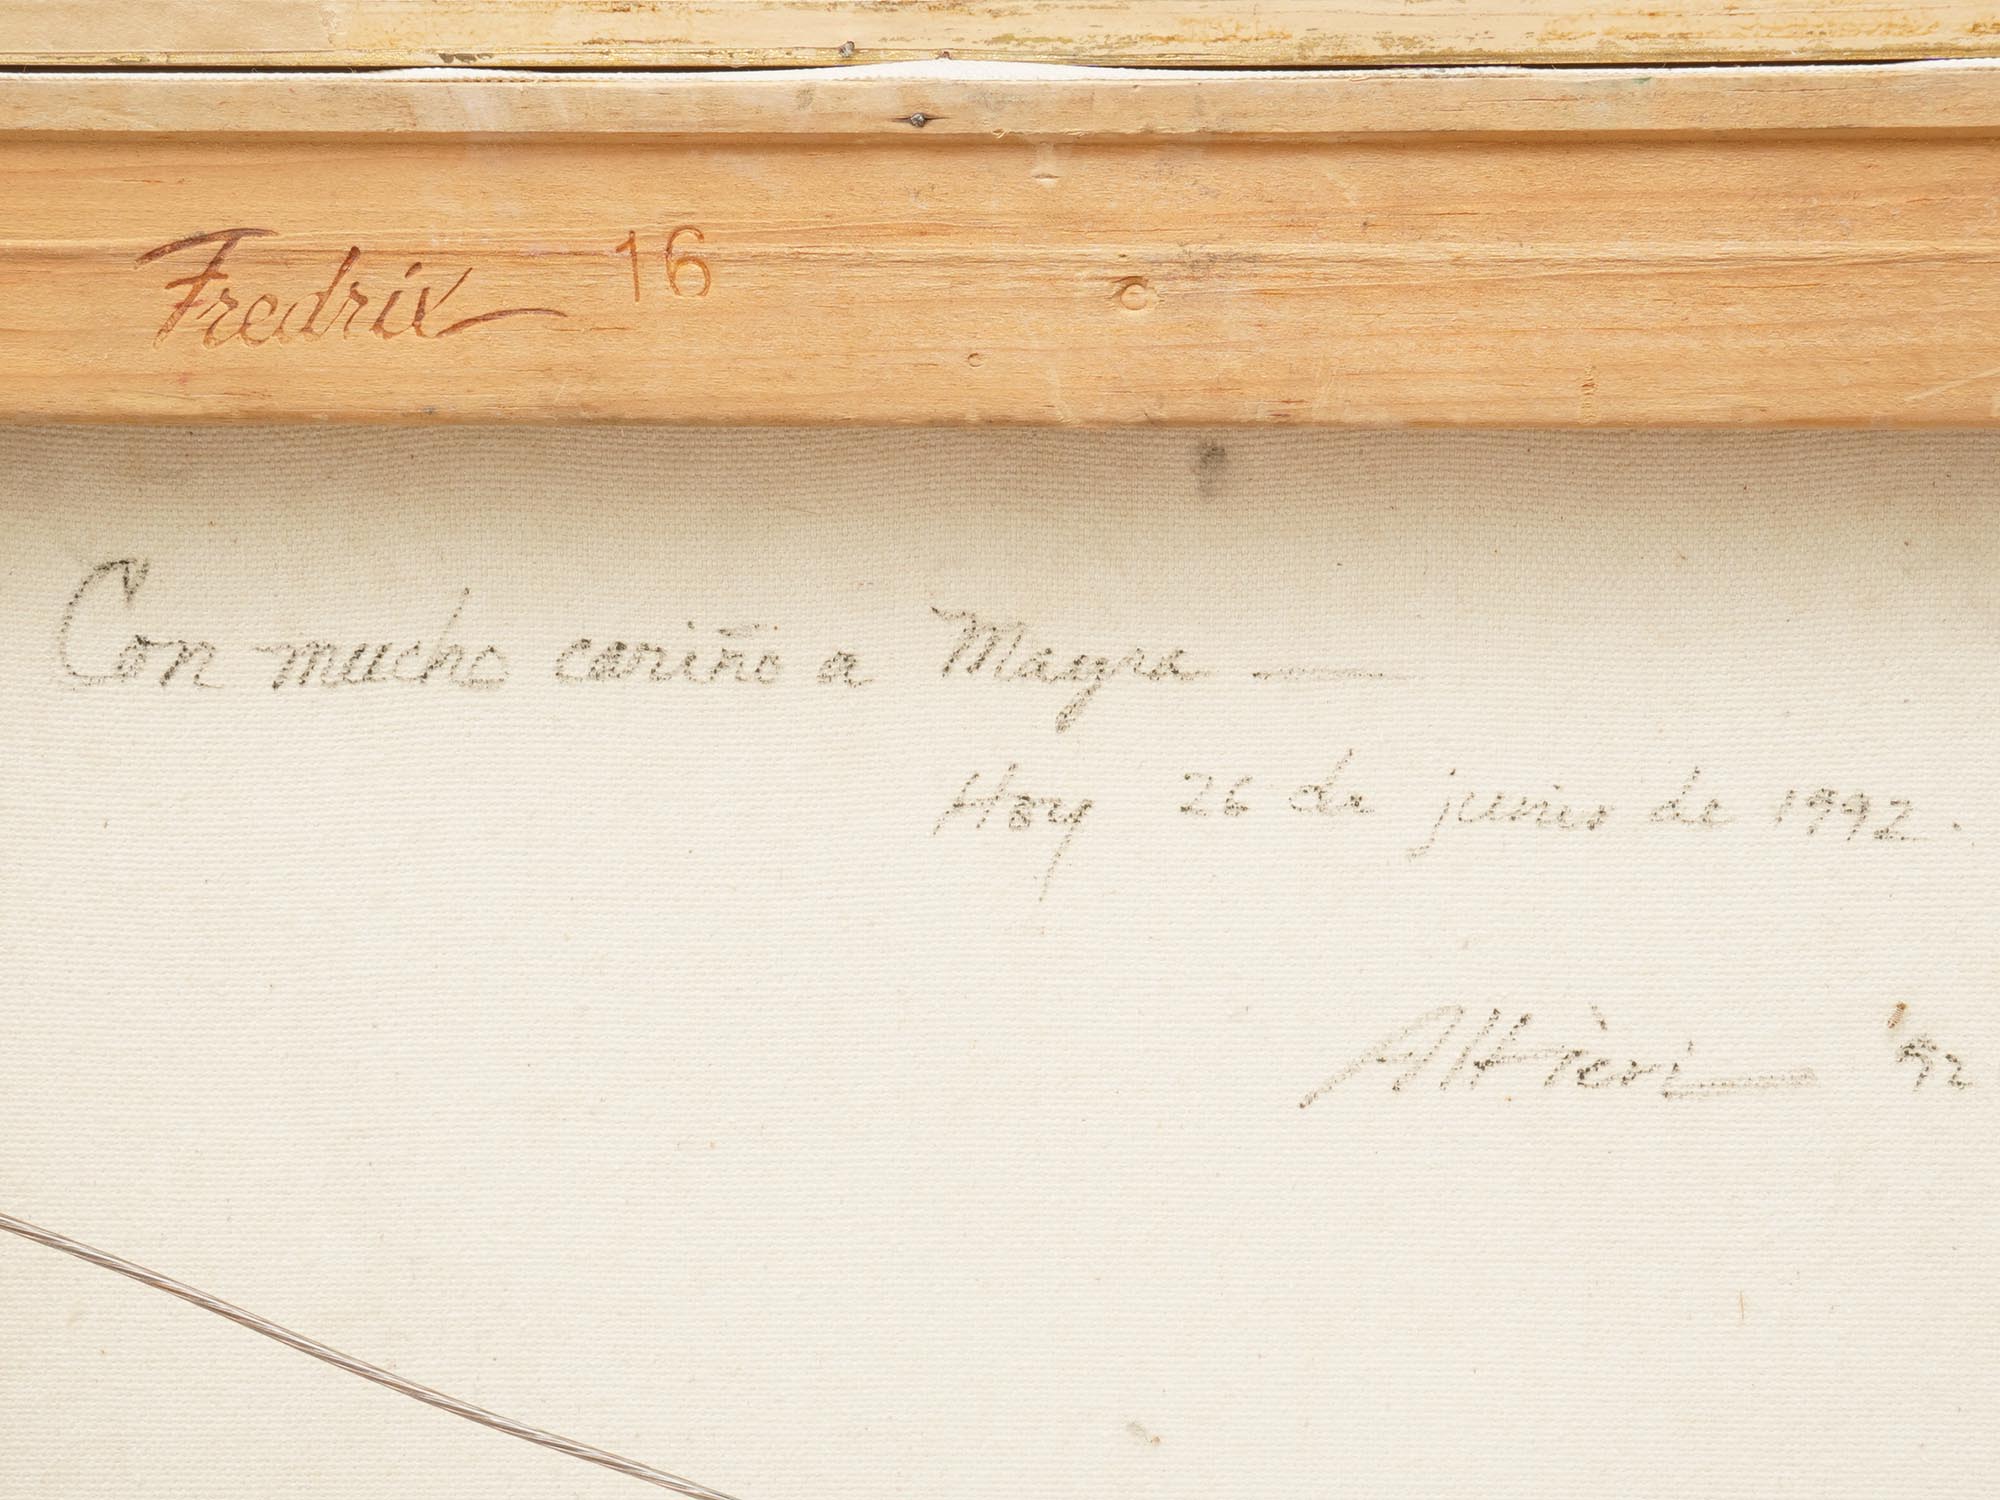 Fredrix 16
Con mucho cariño a Mayra
Hoy 26 de junio de 1992.
Altieri '92